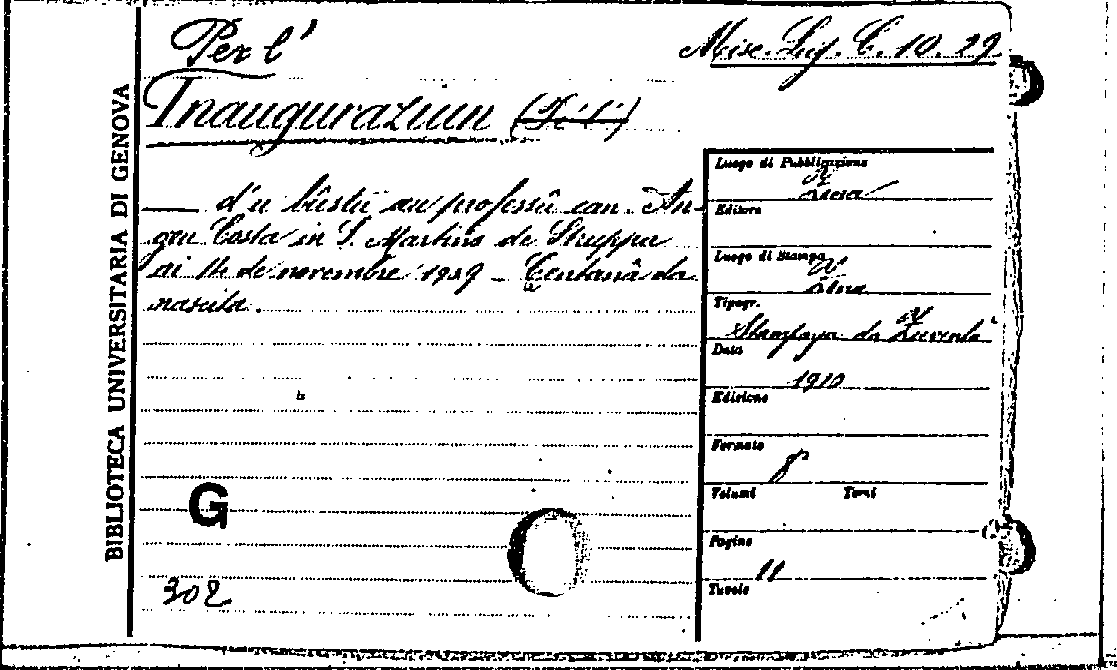 Per l'
Misc. Lig. C. 10. 29
Inauguraziun
BIBLIOTECA UNIVERSITARIA DI GENOVA
d'u büstü au professû can. An-
gen Costa in S. Martino de Struppa
ai 14 de novembre 1909 - Centanâ da
nascita.
G
302
Luogo di Pubblicazione
Zena
Editore
Luogo di Stampa
Zena
Tipogr.
Stampaja da Zuventû
Data
1910
Edizione
Formato
8°
Volumi Tomi
Pagine
11
Tavole